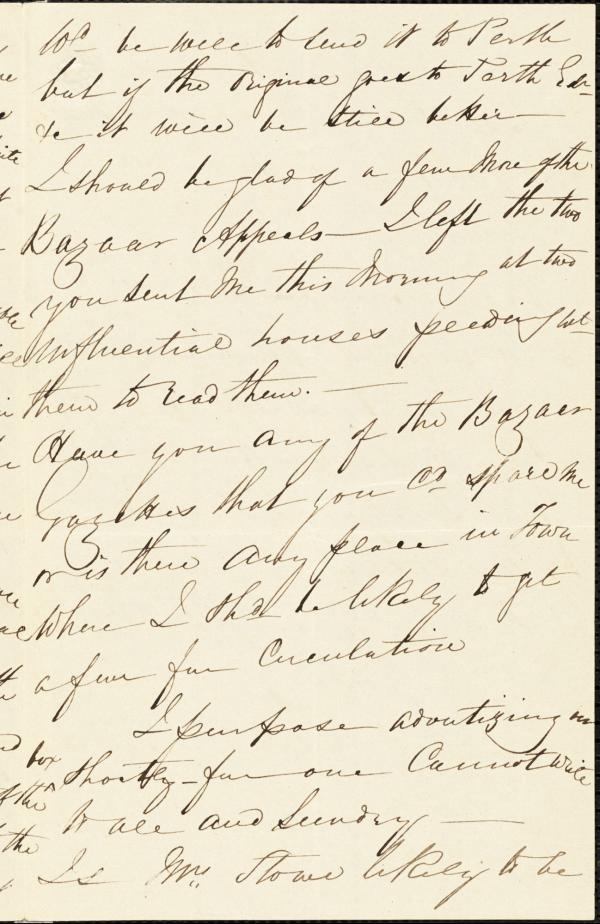 Wd be well to send it to Perth
but if the original goes to Perth Edn
&c it will be still better—
I should be glad of a few More of the
Bazaar Appeals— I left the two
you sent Me this Morning at two
Influential houses
them to read them.—
Have you any of the Bazaar
Gazettes that you cd spare Me
or is there any place in Town
Where I shd be likely to get
a few for Circulation
I purpose advertizing
box
shortly—for one Cannot write
to all and Sundry—
Is Mrs. Stowe likely to be